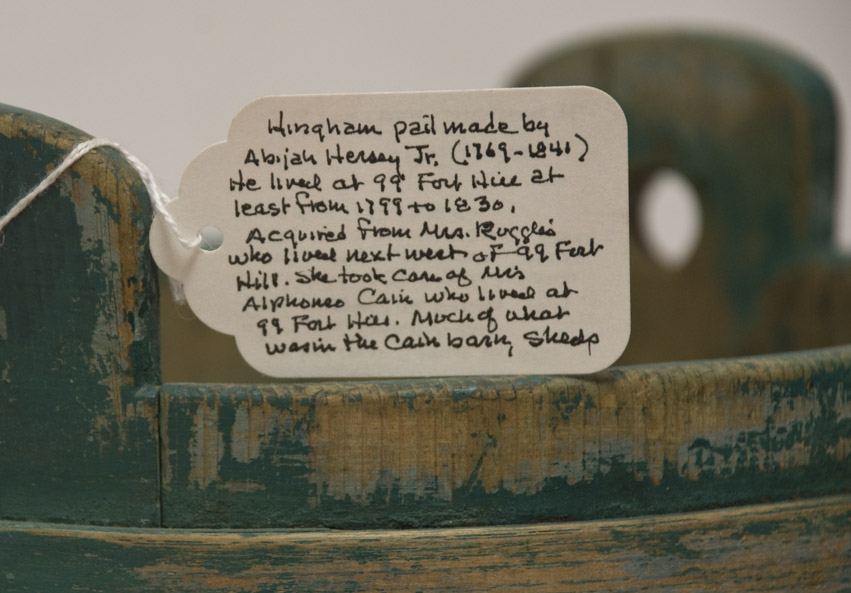 Hingham pail made by
Abijah Hersey Jr. (1769-1841)
He lived at 99 Fort Hill at
least from 1799 to 1830.
Acquired from Mrs. Ruggles
who lived next west of 99 Fort
Hill. She took care of Mrs
Alphonso Cain who lived at
99 Fort Hill. Much of what
was in the Cain barn, sheds